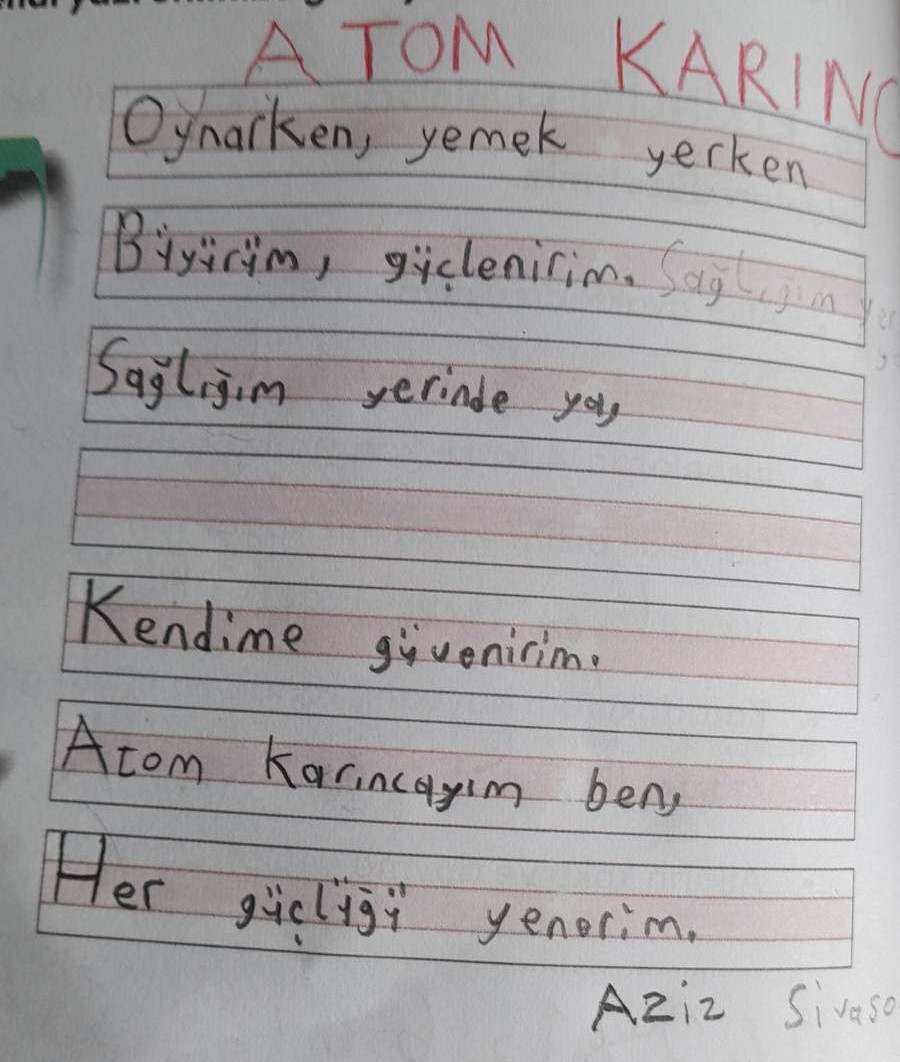 ATOM KARINC
Oynarken, yemek yerken
Büyürüm, güçlenirim. Sağlığım yer
Sağlığım yerinde ya,
Kendime güvenirim.
Atom karıncayım ben,
Her güçlüğü yenerim.
Aziz Sivaso